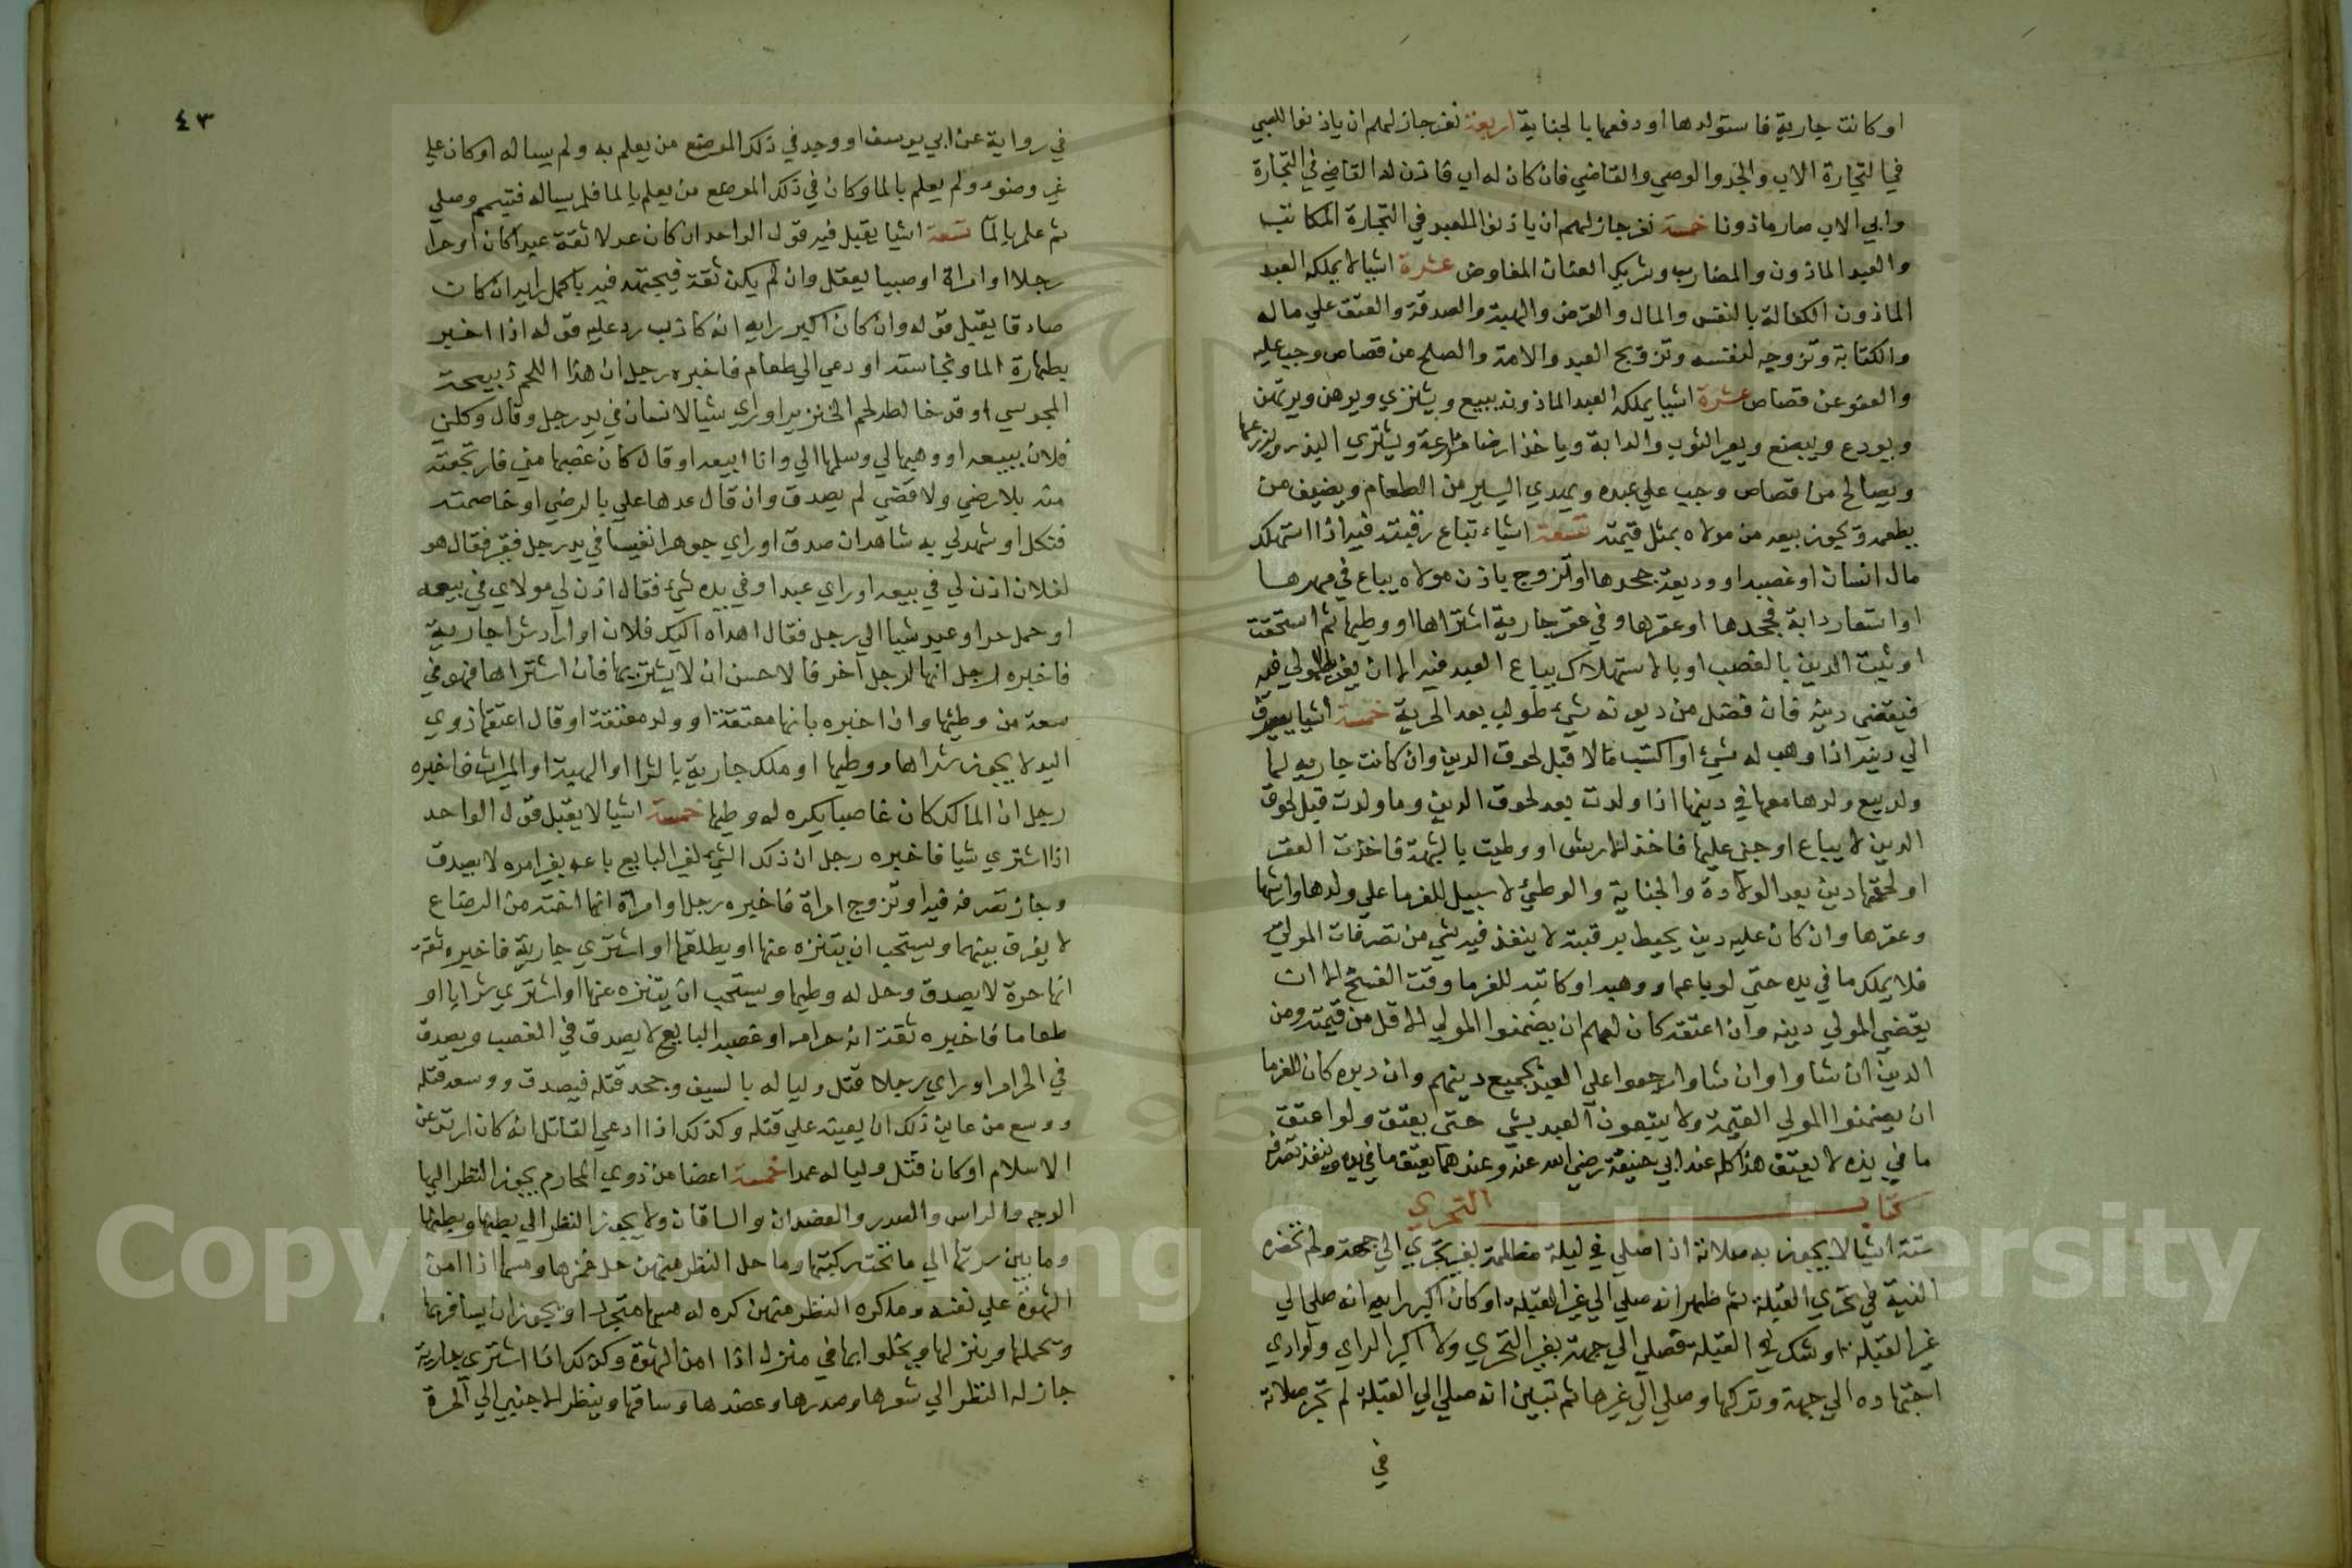 او كانت جارية فاستولدها او دفعها بالجناية اربعة نفر جاز لهم ان ياذنوا للصبي
في التجارة الاب والجد والوصي والقاضي فان كان له اب فاذن له القاضي في التجارة
وابي الاب صار ماذونا خمسة نفر جاز لهم ان ياذنوا للعبد في التجارة المكاتب
والعبد الماذون والمضارب وشريك العنان المفاوض عشرة اشيا لا يملكه العبد
الماذون الكفالة بالنفس والمال والقرض والهبة والصدقة والعتق علي ماله
والكتابة وتزوجه لنفسه وتزويج العبد والامة والصلح من قصاص وجب عليه
والعفو عن قصاص عشرة اشيا يملكه العبد الماذون يبيع ويشتري ويرهن ويرتهن
ويودع ويبضع ويعير الثوب والدابة وياخذ ارضا مزارعة ويشتري البذر ويزرعها
ويصالح من قصاص وجب علي عبده ويهدي اليسير من الطعام ويضيف من
يطعمه ويجوز بيعه من مولاه بمثل قيمته تسعة اشياء تباع رقبته فيه اذا استهلك
مال انسان او غصبه او وديعة جحدها او تزوج باذن مولاه يباع في مهرها
او استعار دابة فجحدها او عقرها وفي عقر جارية اشتراها او وطيها ثم استحقت
او ثبت الدين بالغصب او بالاستهلاك يباع العبد فيه الا ان يفديه المولي فيه
فيقضي دينه فان فضل من ديونه شيء طولب بعد الحرية خمسة اشيا يصرف
الي دينه اذا وهب له شيء او اكتسب مالا قبل لحوق الدين وان كانت جاريه لها
ولد بيع ولدها معها في دينها اذا ولدت بعد لحوق الدين وما ولدت قبل لحوق
الدين لا يباع او جني عليها فاخذ الارش او وطيت بالشبهة فاخذت العقر
او لحقها دين بعد الولادة والجناية والوطئ لا سبيل للغرما علي ولدها وارشها
وعقرها وان كان عليه دين يحيط برقبته لا ينفذ فيه شي من تصرفات المولي
فلا يملك ما في يده حتي لو باعه او وهبه او كاتبه للغرما وقت الفسخ الا ان
يقضي المولي دينه وان اعتقه كان لهم ان يضمنوا المولي الاقل من قيمته ومن
الدين ان شاوا وان شاوا رجعوا علي العبد بجميع دينهم وان دبره كان للغرما
ان يضمنوا المولي القيمة ولا يتبعون العبد بشي حتي يعتق ولو اعتق
ما في يده لا يعتق هذا كله عند ابي حنيفة رضي الله عنه وعندهما يعتق ما في يده وينفذ تصرفه
كتاب التحري
ستة اشيا لا يجوز به صلاته اذا صلي في ليلة مظلمة بغير تحري الي جهة ولم تحضره
النية في تحري القبلة ثم ظهر انه صلي الي غير القبلة او كان اكبر رايه انه صلي الي
غير القبلة او شك في القبلة فصلي الي جهة بغير التحري ولا اكبر الراي ولو ادي
اجتهاده الي جهة وتركها وصلي الي غيرها ثم تبين انه صلي الي القبلة لم تجز صلاته
في
٤٣
في رواية عن ابي يوسف او وجد في ذلك الموضع من يعلم به ولم يساله او كان علي
غير وضوء ولم يعلم بالما وكان في ذلك الموضع من يعلم بالما فلم يساله فتيمم وصلي
ثم علم بالما تسعة اشيا يقبل فيه قول الواحد ان كان عدلا ثقة عبدا كان او حرا
رجلا او امراة او صبيا يعقل وان لم يكن ثقة فيجتهد فيه باكمل رايه ان كان
صادقا يقبل قوله وان كان اكبر رايه انه كاذب رد عليه قوله اذا اخبر
بطهارة الما ونجاسته او دعي الي طعام فاخبره رجل ان هذا اللحم ذبيحة
المجوسي او قد خالطه لحم الخنزير او راي شيا لانسان في يد رجل وقال وكلني
فلان ببيعه او وهبها لي وسلمها الي وانا ابيعه او قال كان غصبها مني فارتجعته
منه بلا رضي ولا قضي لم يصدق وان قال عدها علي بالرضي او خاصمته
فنكل او شهد لي به شاهدان صدق او راي جوهرا نفيسا في يد رجل فقير فقال هو
لفلان اذن لي في بيعه او راي عبدا وفي يده شيء فقال اذن لي مولاي في بيعه
او حمل حر او عبد شيا الي رجل فقال اهداه اليك فلان او اراد شرا جارية
فاخبره رجل انها لرجل آخر فالاحسن ان لا يشتريها فان اشتراها فهو في
سعة من وطئها وان اخبره بانها معتقة او ولد معتقة او قال اعتقها ذوي
اليد لا يجوز شراها ووطيها او ملك جارية بالشرا او الهبة او الميراث فاخبره
رجل ان المالك كان غاصبا يكره له وطيها خمسة اشيا لا يقبل قول الواحد
اذا اشتري شيا فاخبره رجل ان ذلك الشيء لغير البايع باعه بغير امره لا يصدق
وجاز تصرفه فيه او تزوج امراة فاخبره رجل او امراة انها اخته من الرضاع
لا يفرق بينهما ويستحب ان يتنزه عنها او يطلقها او اشتري جارية فاخبره ثقة
انها حرة لا يصدق وحل له وطيها ويستحب ان يتنزه عنها او اشتري شرابا او
طعاما فاخبره ثقة انه حرام او غصبه البايع لا يصدق في الغصب ويصدق
في الحرام او راي رجلا قتل وليا له بالسيف وجحد قتله فيصدق ووسعه قتله
ووسع من عاين ذلك ان يعينه علي قتله وكذلك اذا ادعي القاتل انه كان ارتد عن
الاسلام او كان قتل وليا له عمدا خمسة اعضا من ذوي المحارم يجوز النظر اليها
الوجه والراس والصدر والعضدان والساقان ولا يجوز النظر الي بطنها وبطنها
وما بين سرتها الي ما تحت ركبتها وما حل النظر منهن حل غمزها ومسها اذا امن
الشهوة علي نفسه وما كره النظر منهن كره له مسها متجردا ويجوز ان يسافر بها
ويحملها وينزلها ويخلو بها في منزل اذا امن الشهوة وكذلك اذا اشتري جارية
جاز له النظر الي شعرها وصدرها وعضدها وساقها وينظر الاجنبي الي الحرة
Copyright © King Saud University